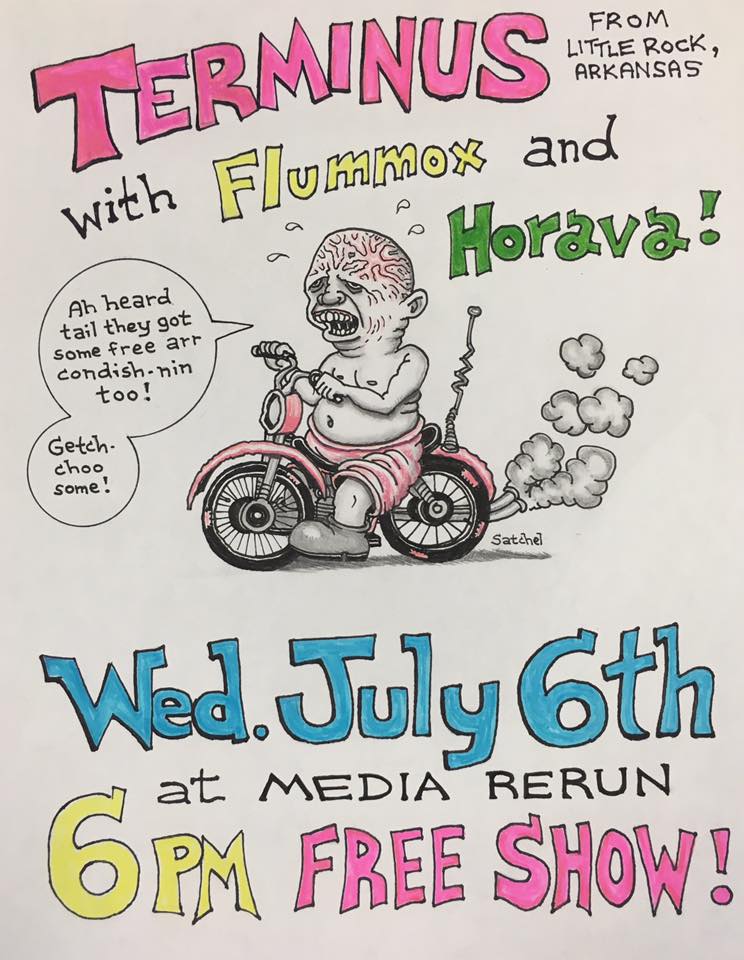 TERMINUS
FROM
LITTLE ROCK,
ARKANSAS
with Flummox and
Horava!
Ah heard
tail they got
some free arr
condish-nin
too!
Getch-
choo
some!
Satchel
Wed. July 6th
at MEDIA RERUN
6 PM FREE SHOW!